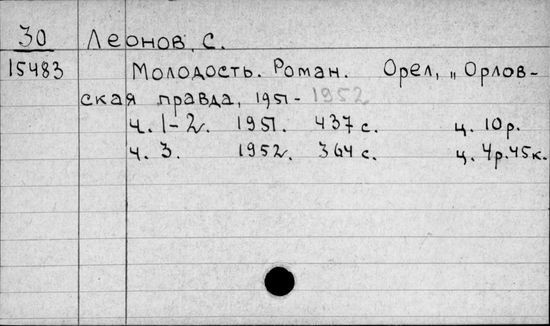 30 Леонов, С.
15483 Молодость. Роман. Орел, „Орлов-
ская правда, 1951-1952
ч. 1-2. 1951. 437 с. ц. 10 р.
ч. 3. 1952. 364 с. ц. 4 р. 45 к.